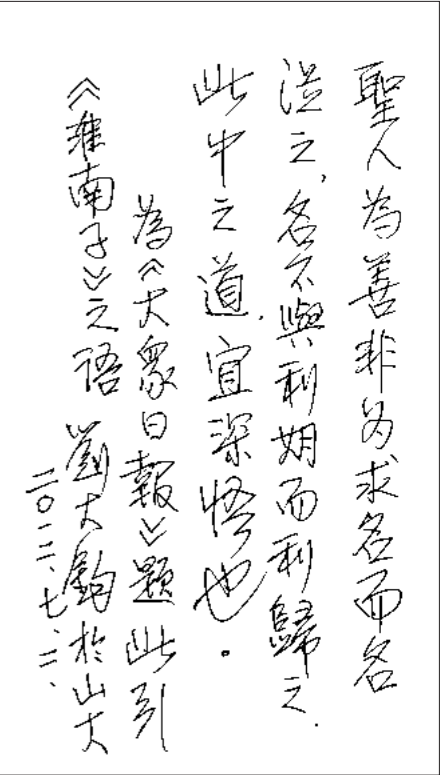 聖人為善非为求名而名
從之,名不與利期而利歸之.
此中之道,宜深悟也。
為《大眾日報》題此引
《淮南子》之語 劉大鈞於山大
二〇一二、七、二、